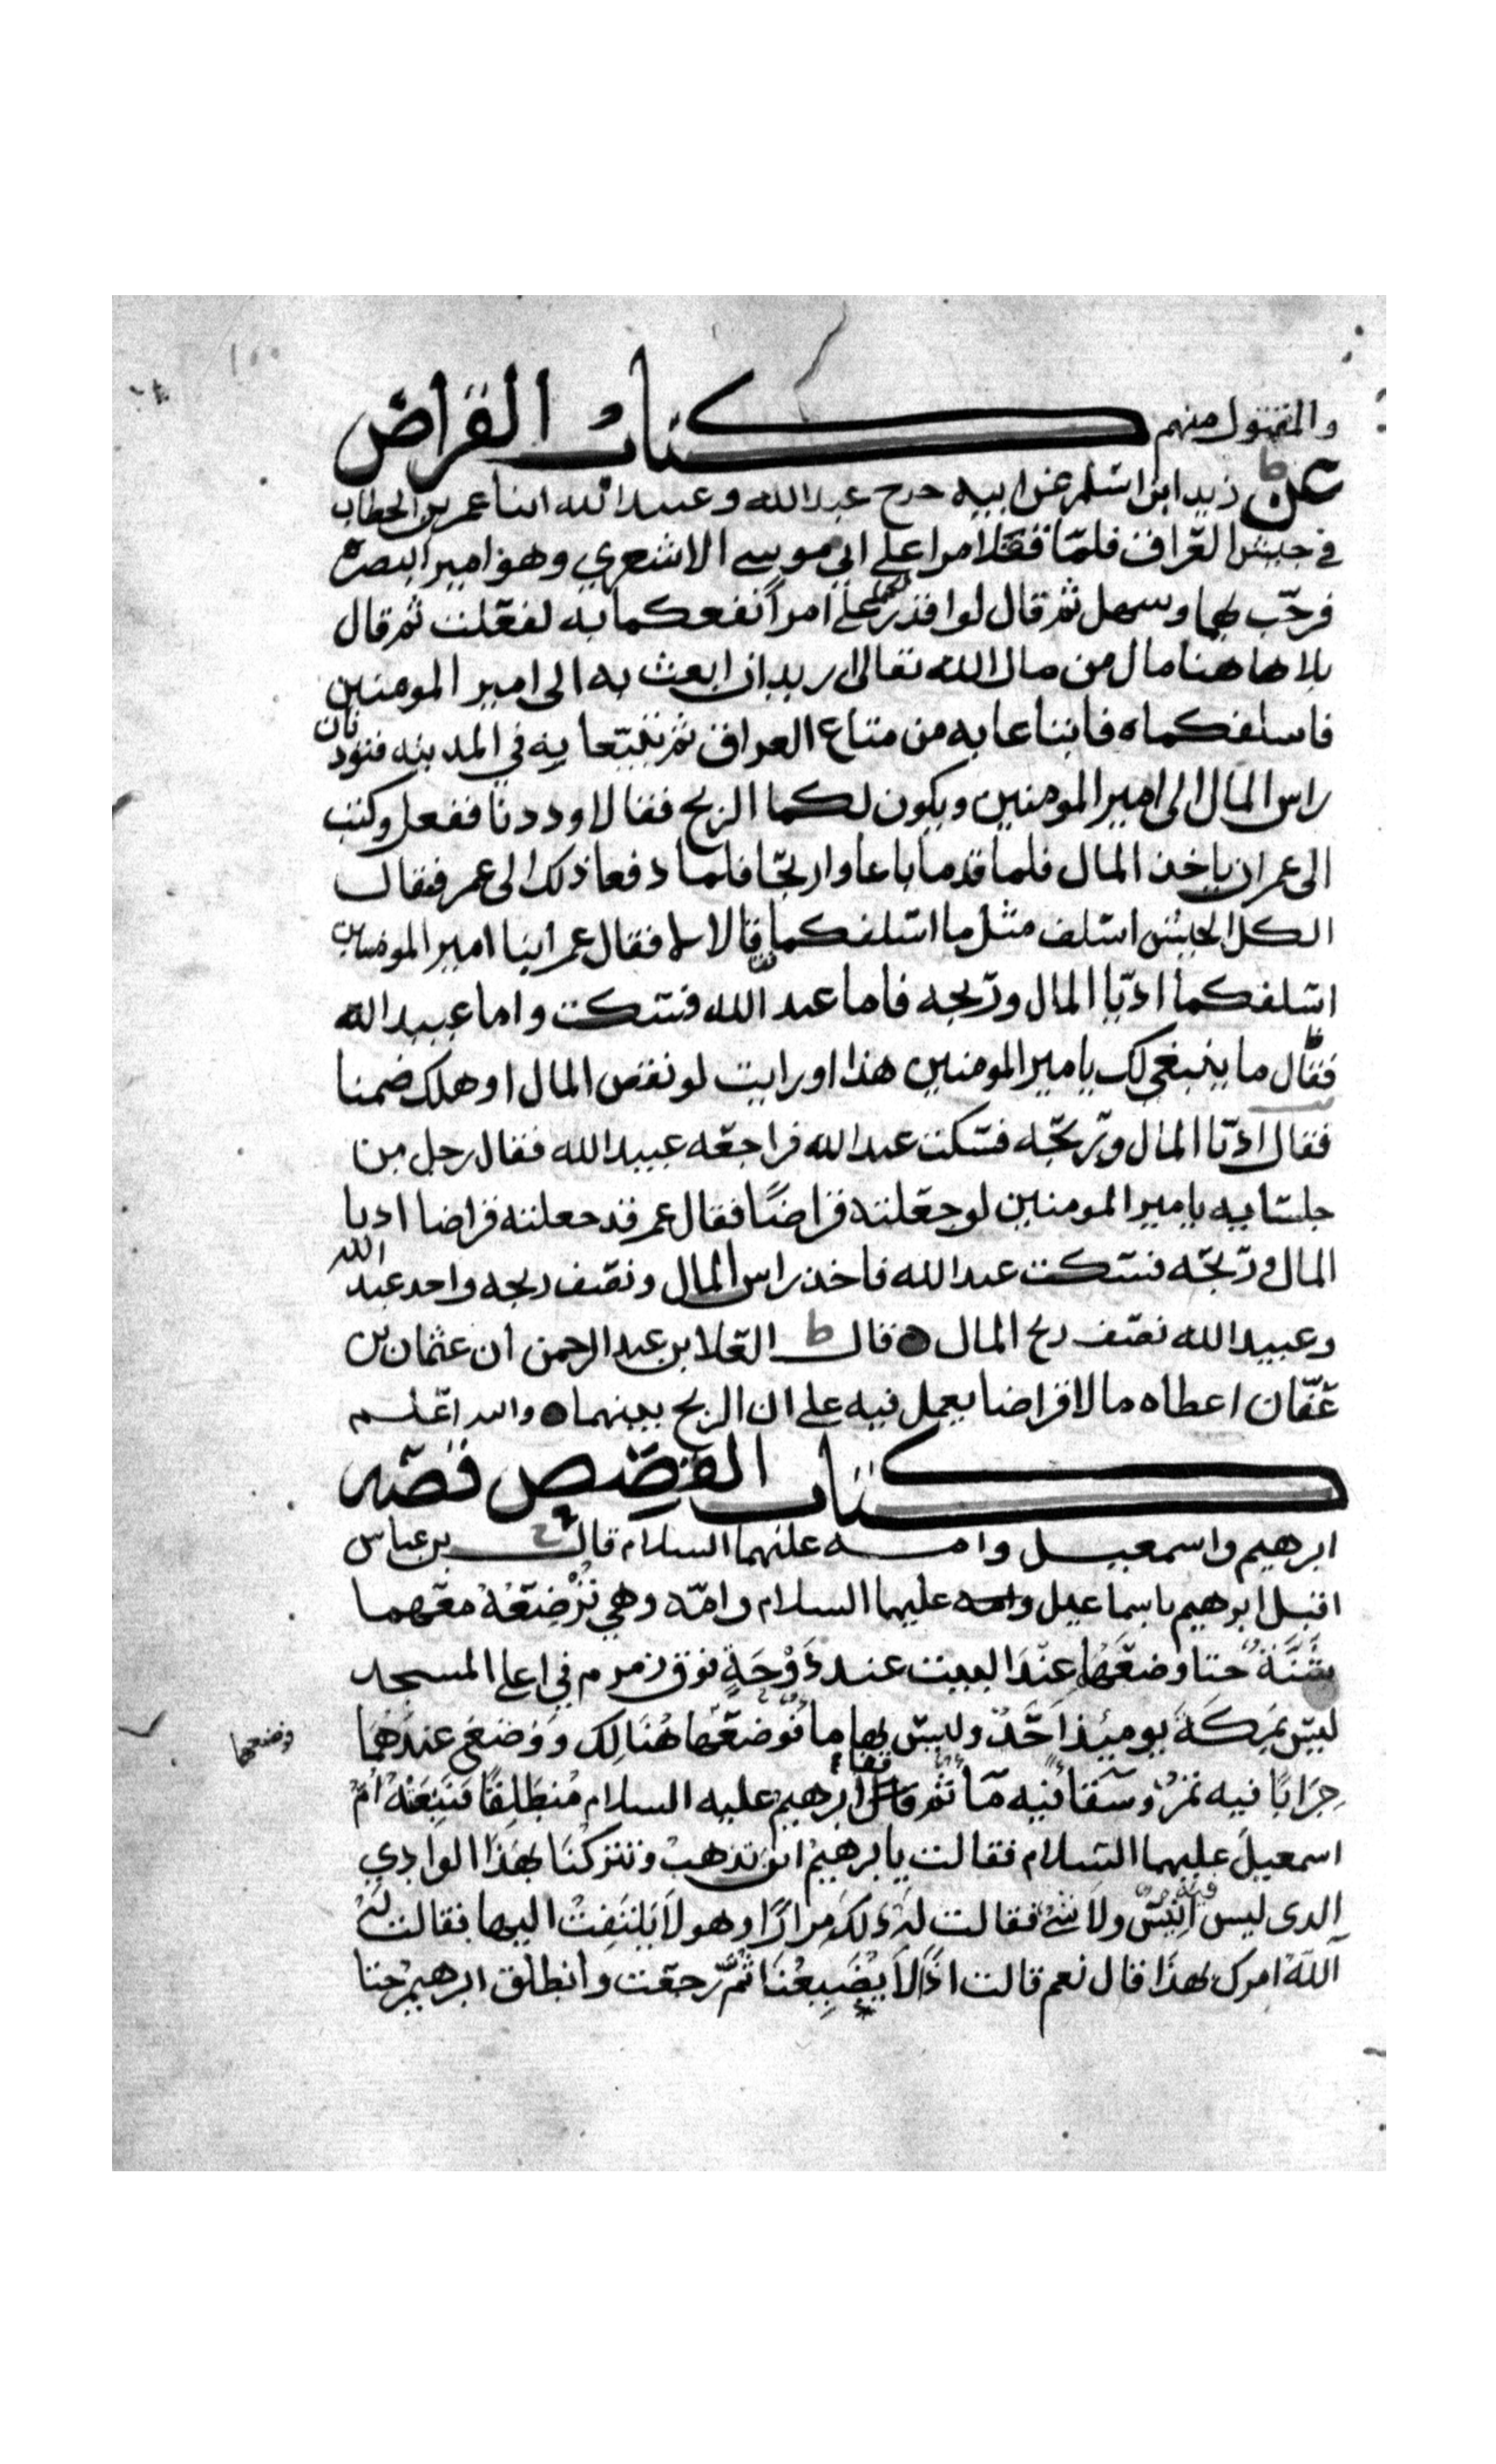 والمقتول منهم كتاب القراض
عن زيد ابن اسلم عن ابيه خرج عبدالله وعبيدالله ابنا عمر بن الخطاب
في جيش العراق فلمّا قفلا مرا على ابي موسى الاشعري وهو امير البصرة
فرحّب بهما وسهل ثم قال لو اقدر لكما على امراً نفعكما به لفعلت ثم قال
بلا هاهنا مال من مال الله تعالى اريد ان ابعث به الى امير المومنين
فاسلفكماه فابتاعا به من متاع العراق ثم تبيعا به في المدينه فتوديان
راس المال الى امير المومنين ويكون لكما الربح فقالا وددنا ففعل وكتب
الى عمر ان ياخذ المال فلما قدما باعا واربحا فلما دفعا ذلك الى عمر فقال
الكل الجيش اسلف مثل ما اسلفكما قالا لا فقال عمر ابنا امير المومنين
اسلفكما ادّيا المال وربحه فاما عبد الله فسكت واما عبيد الله
فقال ما ينبغي لك يامير المومنين هذا او رايت لو نقص المال او هلك ضمنا
فقال ادّيا المال وربحه فسكت عبد الله فراجعه عبيد الله فقال رجل من
جلسايه يامير المومنين لو جعلته قراضًا فقال عمر قد جعلته قراضا اديا
المال وربحه فسكت عبد الله فاخذ راس المال ونصف ربحه واخد عبد الله
وعبيد الله نصف ربح المال قال ط العلا بن عبد الرحمن ان عثمان بن
عفّان اعطاه مالا قراضا يعمل فيه على ان الربح بينهما والله اعلم
كتاب القصص قصه
ابرهيم واسمعيل وامه عليهما السلام قال بن عباس
اقبل ابرهيم باسماعيل وامه عليهما السلام وامّه وهي تُرْضِعُهُ معهما
شَنَّةٌ حتا وضعهَا عِنْدَ البيت عند دَوْحَةٍ فوق زمزم في اعلى المسجد
ليس بمَكةَ يوميئذ احَدٌ وليس بها ما فوضعهما هُنَالِك وَوَضع عندهُمَا
وضعهما
جِرَابًا فيه تمرٌ وسقا فيه مَا ثم قفا ابرهيم عليه السلام مُنطَلِقًا فتَبِعَتْهُ امُّ
اسمعيلَ عليهما السلام فقالت يابرهيمُ اين تذهبُ وتتركنَا بهَذا الوادِي
الدى ليس فيه انِيسٌ ولا شيٌ فقالت له ذلكَ مِرارًا وهو لا يَلتَفِتُ اليها فقالت لهُ
آلله امرك بهذا قال نعم قالت اذًا لاَ يُضَيِعُنَا ثُمَّ رجعت وانطلق ابرهيمُ حتا